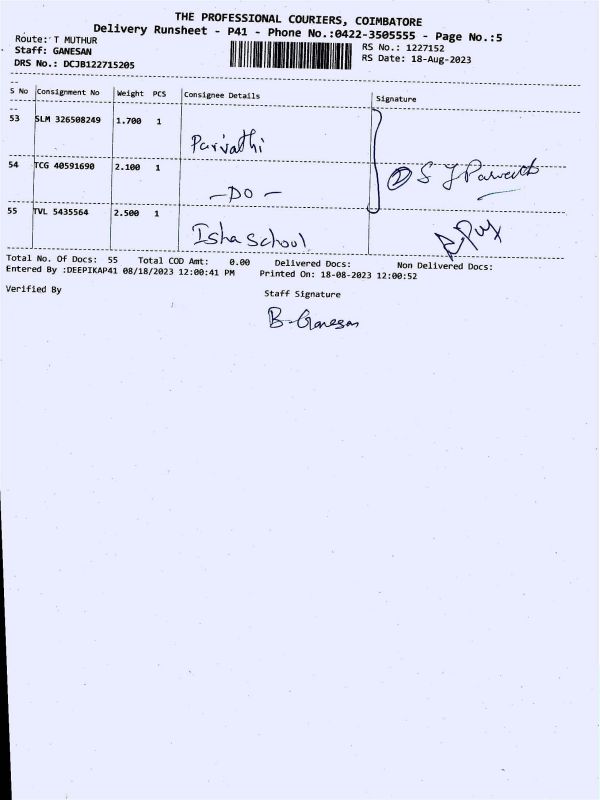 THE PROFESSIONAL COURIERS, COIMBATORE
Delivery Runsheet - P41 - Phone No.:0422-3505555 - Page No.:5
Route: T MUTHUR
RS No.: 1227152
Staff: GANESAN
RS Date: 18-Aug-2023
DRS No.: DCJB122715205
S No Consignment No Weight PCS Consignee Details Signature
53 SLM 326508249 1.700 1
Parvathi
54 TCG 40591690 2.100 1
- DO -
55 TVL 5435564 2.500 1
Isha School
Total No. Of Docs: 55 Total COD Amt: 0.00 Delivered Docs: Non Delivered Docs:
Entered By :DEEPIKAP41 08/18/2023 12:00:41 PM Printed On: 18-08-2023 12:00:52
Verified By
Staff Signature
B-Ganesan